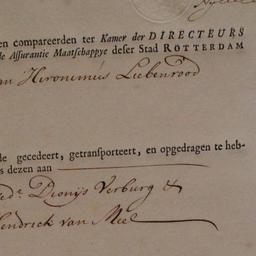 en compareerden ter Kamer der DIRECTEURS
de Assurantie Maatschappye deser Stad ROTTERDAM
an Hieronimus Liebenrood
de gecedeert, getransporteert, en opgedragen te heb-
s dezen aan
ed.e Dionijs Verburg &
Hendrick van Meel